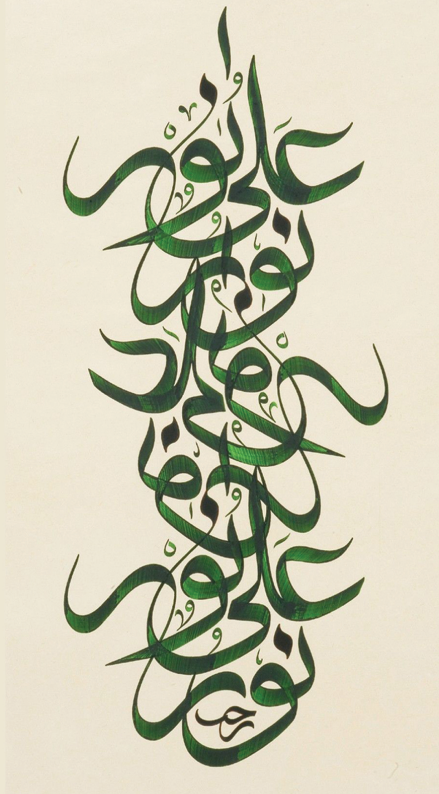 نور على نور
نور على نور
نور على نور